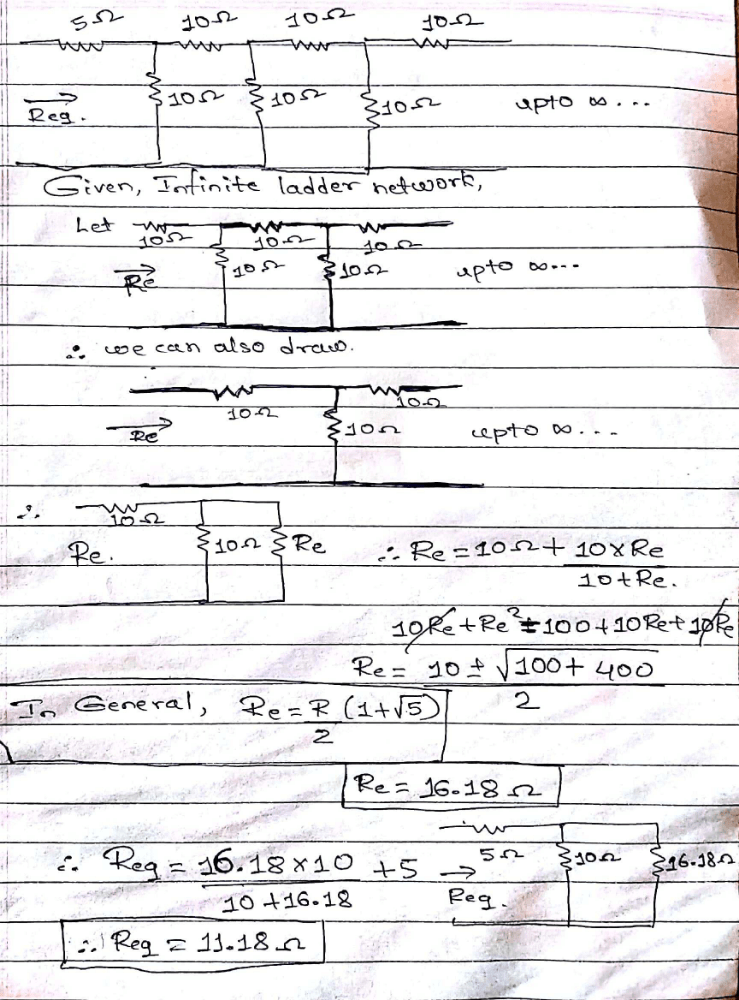 5Ω 10Ω 10Ω 10Ω
10Ω 10Ω 10Ω upto ∞...
Req.
Given, Infinite ladder network,
Let 10Ω 10Ω 10Ω
Re 10Ω 10Ω upto ∞...
∴ we can also draw.
10Ω 10Ω
Re 10Ω upto ∞...
∴ 10Ω
Re. 10Ω Re ∴ Re = 10Ω + 10×Re
10+Re.
10Re + Re² = 100 + 10Re + 10Re
Re = 10 ± √100 + 400
2
In General, Re = R (1+√5)
2
Re = 16.18 Ω
∴ Req = 16.18 × 10 + 5 → 5Ω 10Ω 16.18Ω
10 + 16.18 Req.
∴ Req = 11.18 Ω